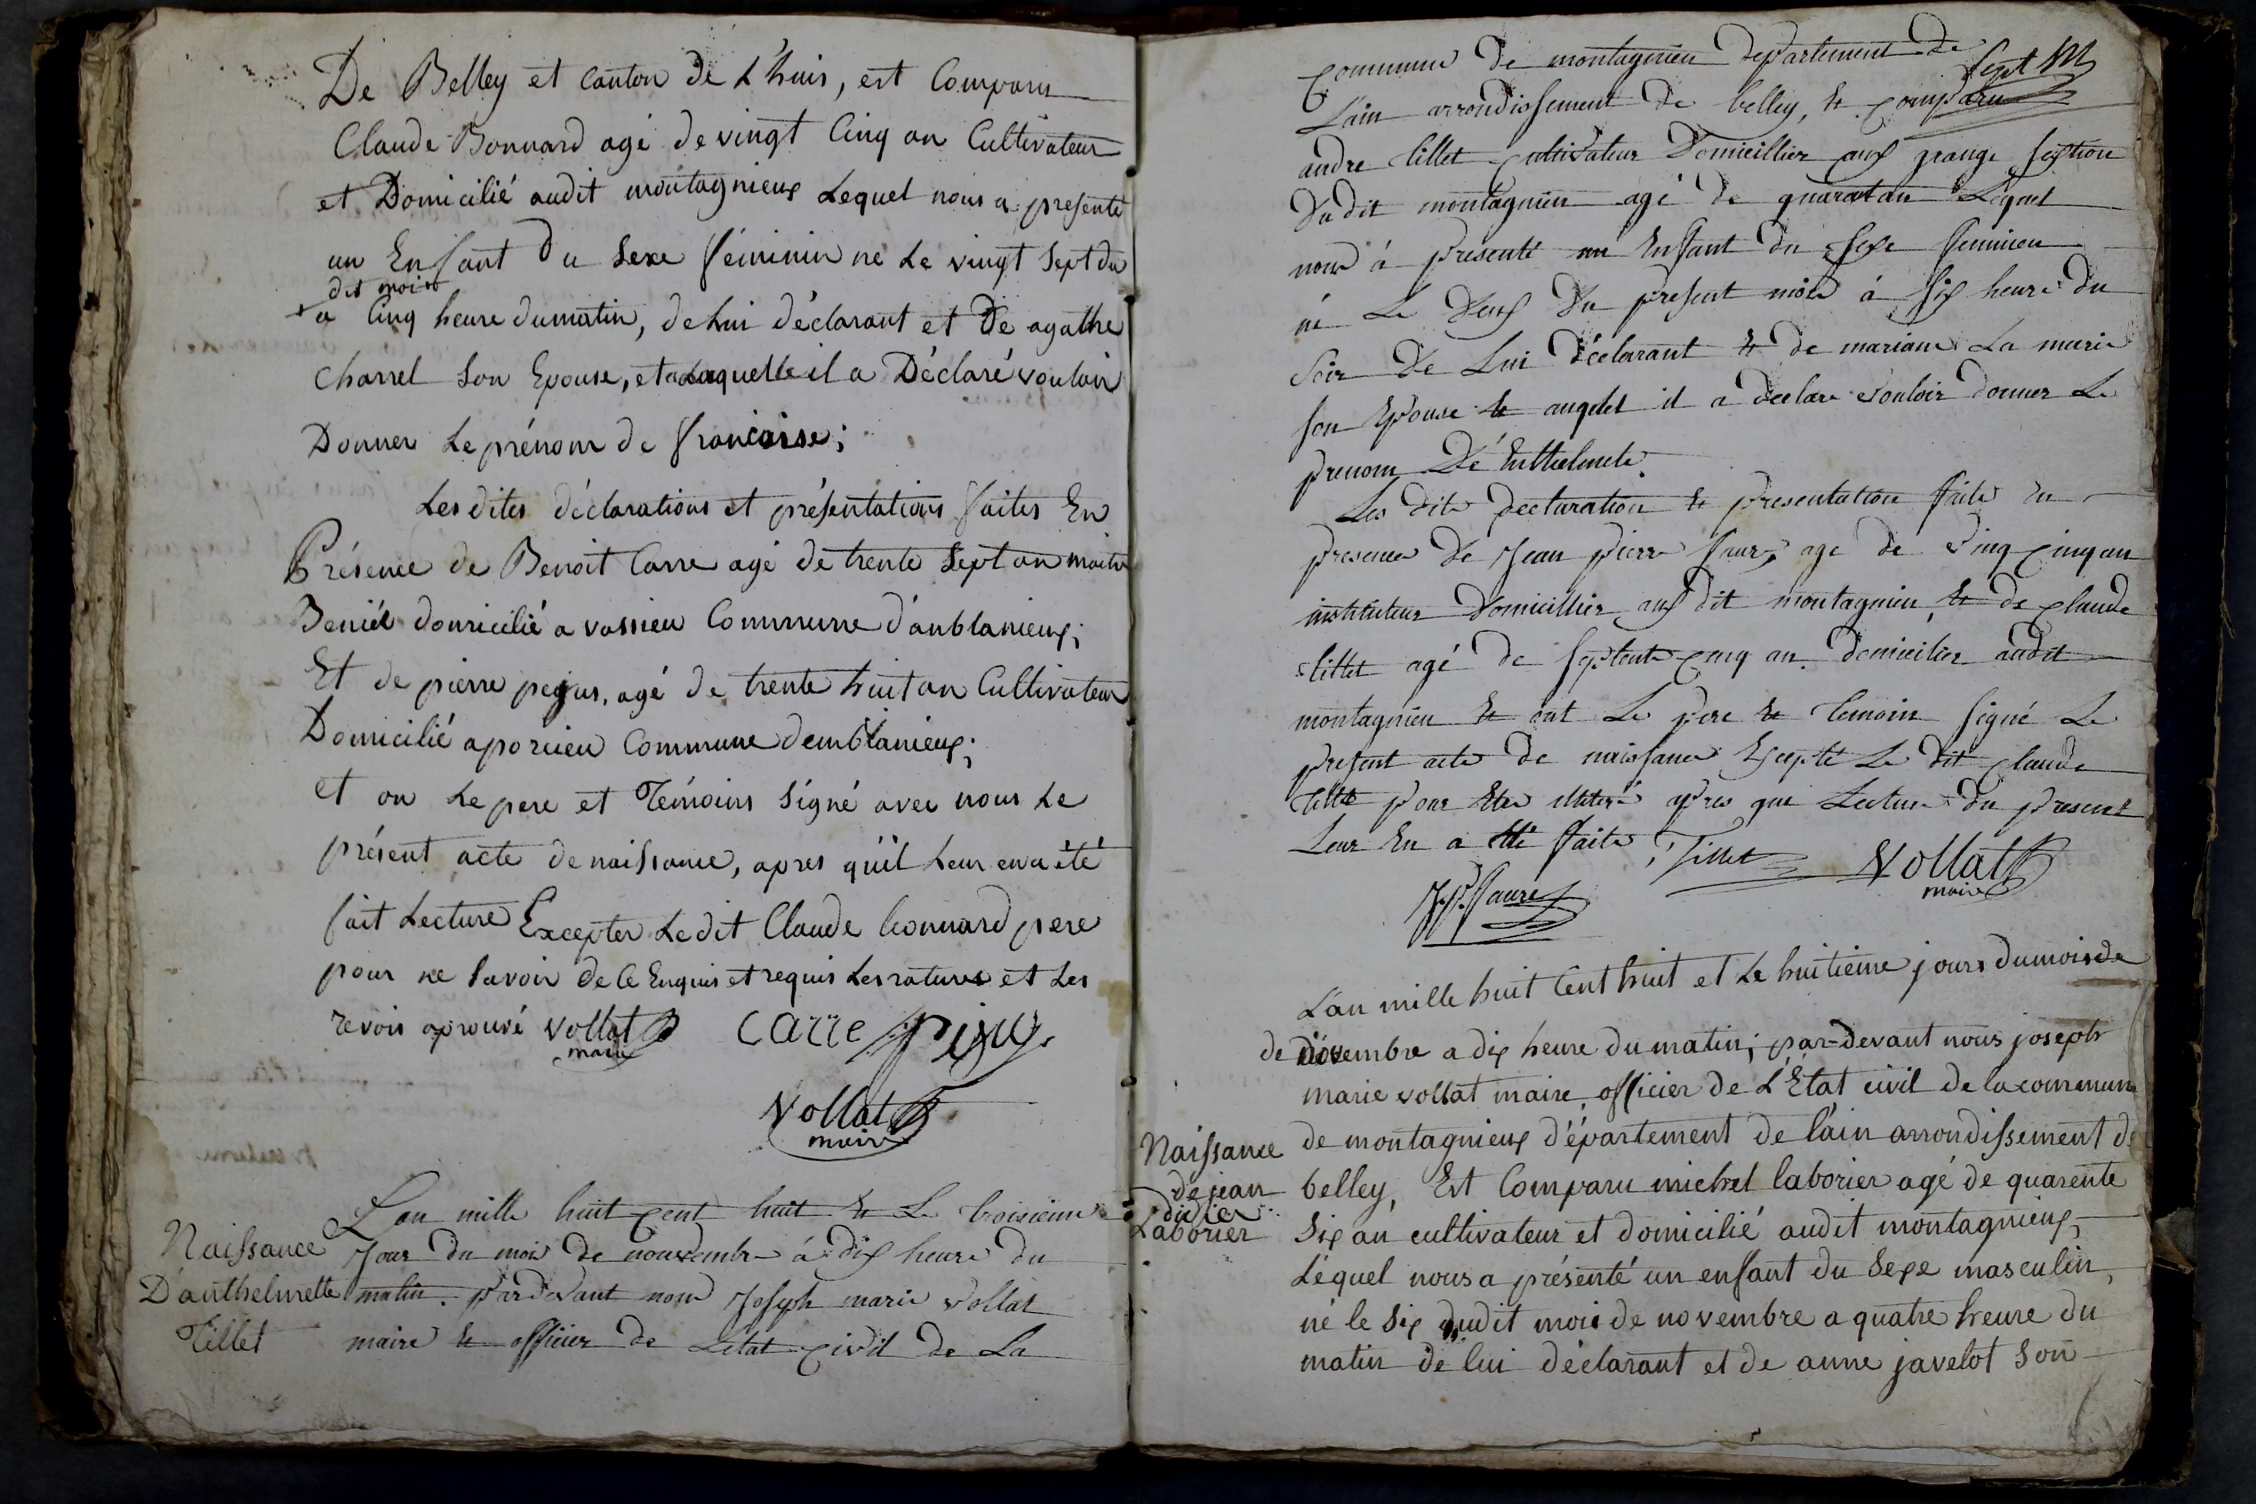 De Belley et canton de L'huis, est Comparu
Claude Bonnard agé de vingt Cinq an Cultivateur
et Domicilié audit montagnieux Lequel nous a presenté
un Enfant Du Sexe féminin né Le vingt Sept du
dit mois
a Cinq heure dumatin, de lui déclarant et De agathe
charrel Son Epouse, et a Laquelle il a Déclaré vouloir
Donner Le prénom de francoise;
Les dites déclarations et présentations faites En
Présence de Benoit Carre agé de trente Sept an
domicilié a vassieu Commune d'anblanieux;
Et de pierre pegus, agé de trente huit an Cultivateur
Domicilié a porcieu Commune demblanieux;
et on Le pere et Témoins Signé avec nous Le
présent acte de naissance, apres qu'il Leur en a été
fait Lecture Excepter Ledit Claude bonnard pere
pour ne Savoir de Ce Enquis et requis Les ratures et Les
revois aprouvé vollat carre
maire
Vollat
maire
Naissance
D'anthelmette
Tillet
L'an mille huit cent huit Et Le troisieme
Jour du mois de nouvembre á dix heure du
matin. pardevant nous Joseph marie vollat
maire Et officier de L'etat civil de La
Sept
commune De montagnieu departement de
L'ain arrondissement de belley, Et comparu
andre tillet cultivateur Domicillier aux grange section
Dudit montagnieu agé de quarotan Lequel
nous á presenté un Enfant du sexe feminien
né Le Deux Du present mois á six heure du
Soir De Lui déclarant Et de mariane La marie
son Epouse Et auqelet il a declare vouloir donner Le
prenom Dé Enthelmete.
Les dite declaration Et presentation faite En
presence De Jean pierre faure, age de vinq cinq an
instituteur Domicillier aux dit montagnieu, Et de claude
tillet agé de septente cinq an domicilier audit
montagnieu Et ont Le pere Et temoin signé Le
present acte de naissance Excepté Le dit claude
tillet pour Etre illiteré apres que Lecture du present
Leur En a été faite, Tillet Vollat
maire
J P. faure
L'an mille huit Cent huit et Le huitieme jours dumois de
de novembre a dix heure du matin; par-devant nous joseph
marie vollat maire, officier de L'Etat civil de la commune
Naissance
de jean
didier
Laborier
de montagnieux département de l'ain arrondissement de
belley, Est Comparu michel laborier agé de quarente
Six an cultivateur et domicilié audit montagnieux,
Léquel nous a présenté un enfant du Sexe masculin,
né le Six dudit mois de novembre a quatre heure du
matin de lui déclarant et de anne javelot son